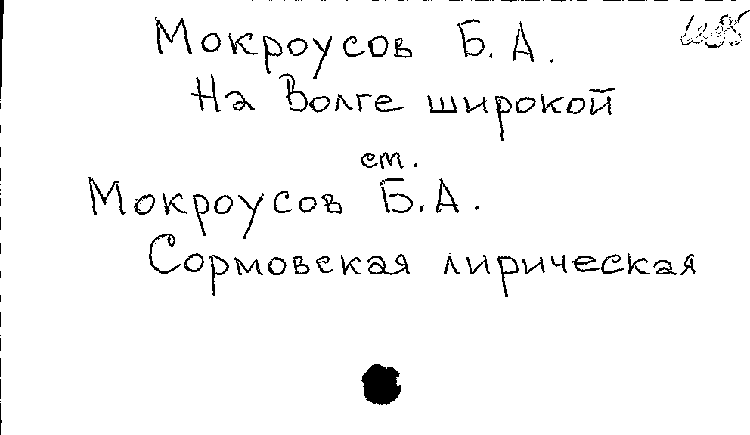 Мокроусов Б. А.
На Волге широкой
см.
Мокроусов Б. А.
Сормовская лирическая